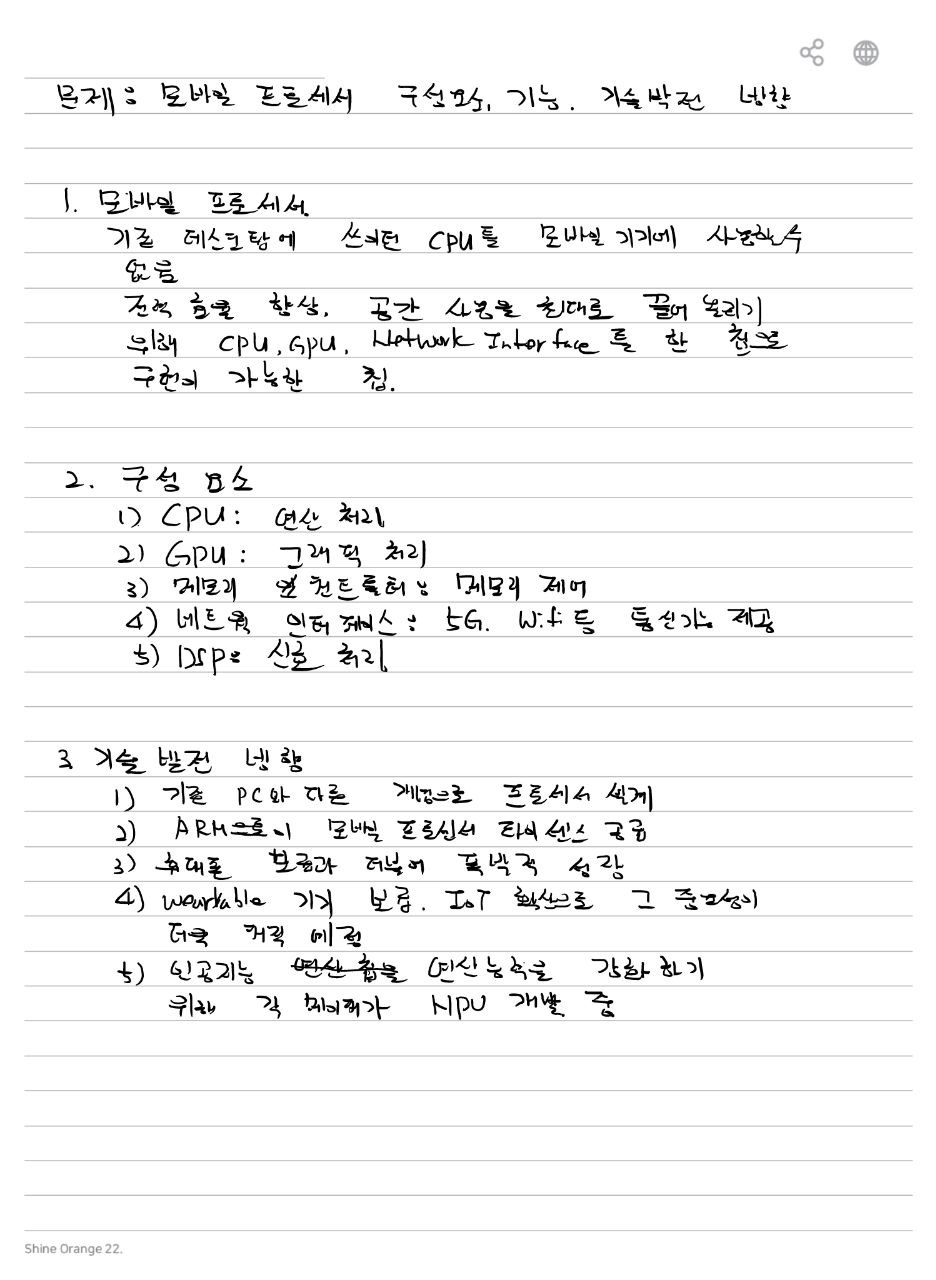 문제: 모바일 프로세서 구성요소, 기능, 기술발전 방향
1. 모바일 프로세서
기존 데스크탑에 쓰이던 CPU를 모바일 기기에 사용할 수
없음
전력 효율 향상, 공간 사용을 최대로 끌어 올리기
위해 CPU, GPU, Network Interface 를 한 칩으로
구현이 가능한 칩.
2. 구성 요소
1) CPU: 연산 처리
2) GPU: 그래픽 처리
3) 메모리 컨트롤러: 메모리 제어
4) 네트웍 인터페이스: 5G, Wifi 등 통신기능 제공
5) DSP: 신호 처리
3 기술 발전 방향
1) 기존 PC와 다른 개념으로 프로세서 설계
2) ARM 모바일 프로세서 라이센스 공급
3) 휴대폰 보급과 더불어 폭발적 성장
4) wearable 기기 보급, IoT 확산으로 그 중요성이
더욱 커질 예정
5) 인공지능 연산능력을 강화 하기
위해 각 메이커가 NPU 개발 중
Shine Orange 22.